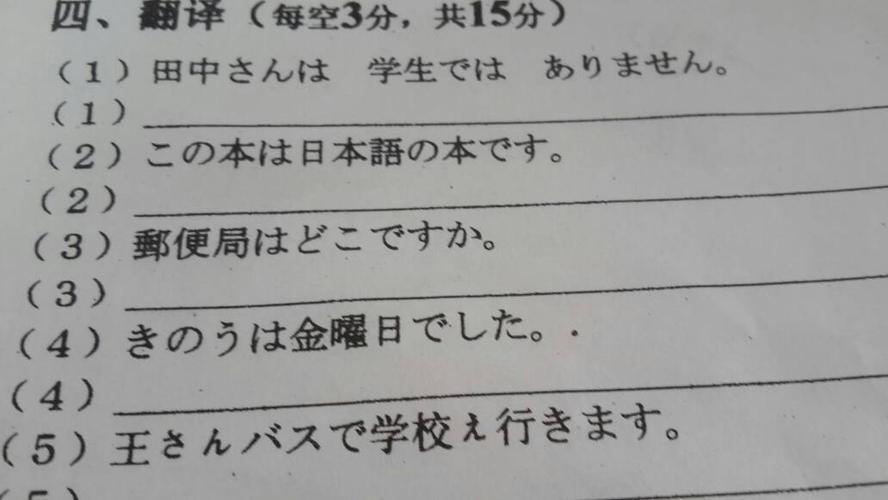 四、翻译（每空3分，共15分）
（1）田中さんは　学生では　ありません。
（1）
（2）この本は日本語の本です。
（2）
（3）郵便局はどこですか。
（3）
（4）きのうは金曜日でした。.
（4）
（5）王さんバスで学校ぇ行きます。
（5）